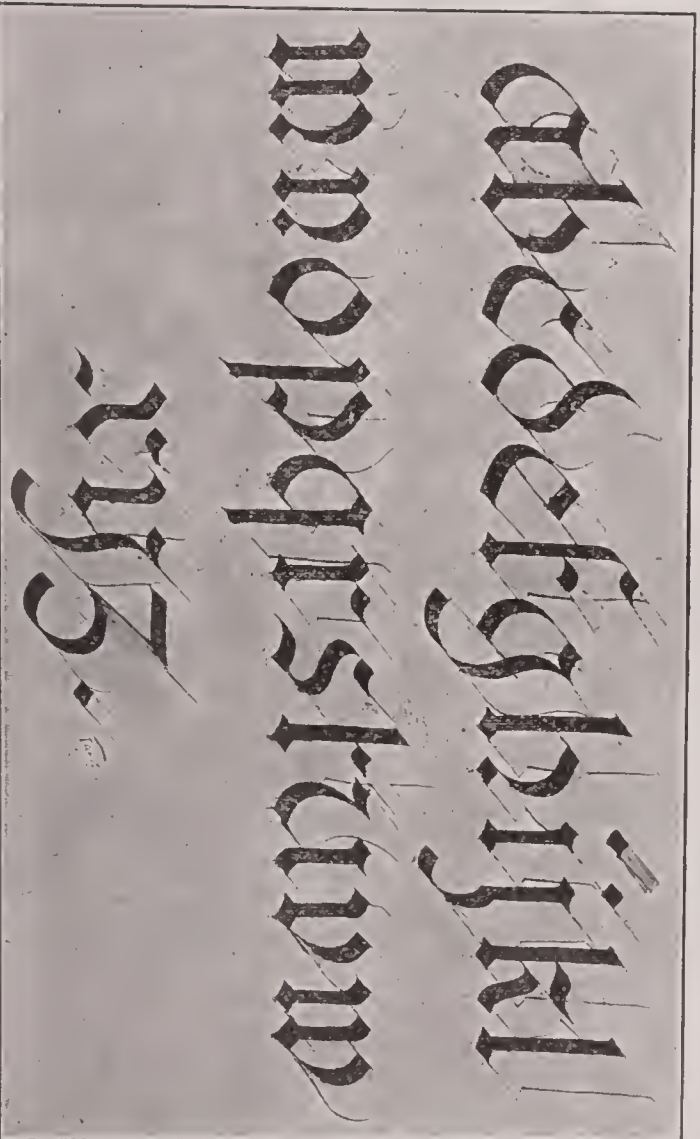 abcdefghijkl
mnopqrstuvw
xyz.